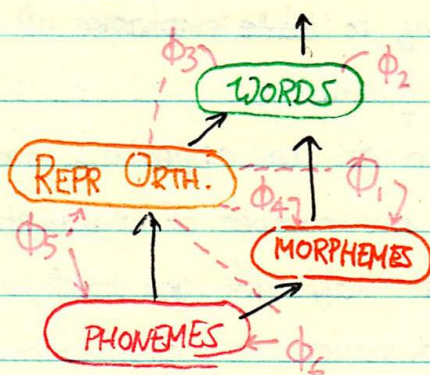 ϕ3
ϕ2
WORDS
REPR ORTH.
ϕ1
ϕ4
ϕ5
MORPHEMES
PHONEMES
ϕ6